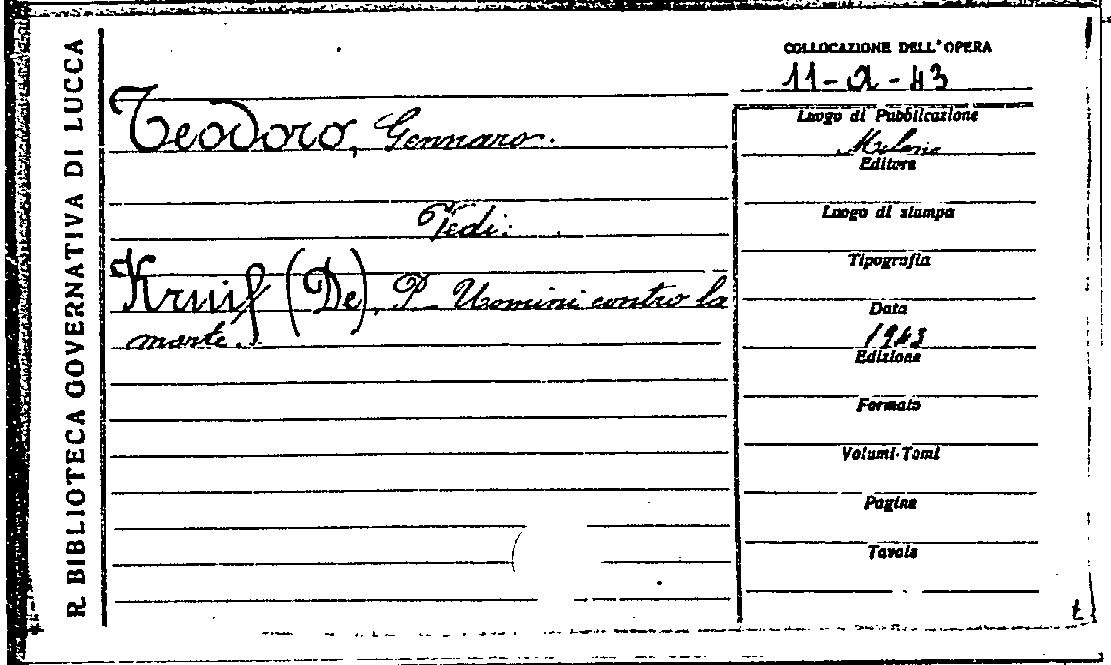 R. BIBLIOTECA GOVERNATIVA DI LUCCA
Teodoro, Gennaro.
Vedi:
Kruif (De), P. Uomini contro la
morte.
COLLOCAZIONE DELL'OPERA
11-a-43
Luogo di Pubblicazione
Milano
Editore
Luogo di stampa
Tipografia
Data
1943
Edizione
Formato
Volumi-Tomi
Pagine
Tavole
t